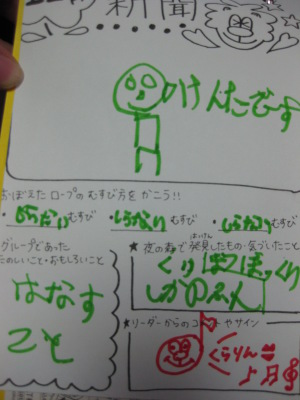 新聞
けんたです
おぼえたロープのむすび方をかこう!!
・むすび ・むすび ・むすび
グループであった
たのしいこと・おもしろいこと
はなす
こと
★夜の森で発見したもの・気づいたこと
はっけん
くり ぼっくり
しかのふん
★リーダーからのコメントやサイン
くらりん